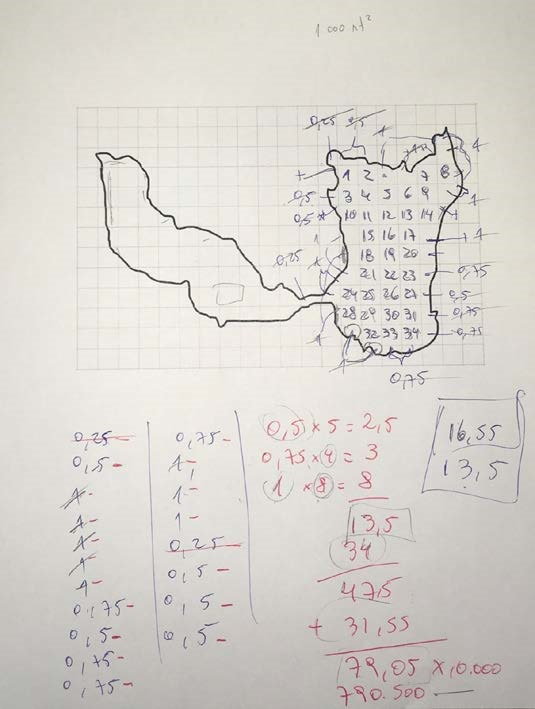 1 000 m²
0,25 0,5 1
1 2 7 8 1
0,5 3 4 5 6 9 1
0,5 10 11 12 13 14
15 16 17 1
0,25 18 19 20
21 22 23 0,75
24 25 26 27 0,5
28 29 30 31 0,75
1 32 33 34 0,75
1
0,75
0,25-
0,5-
1-
1-
1-
1-
1-
0,75-
0,5-
0,75-
0,75-
0,75-
1-
1-
1-
0,25-
0,5-
0,5-
0,5-
0,5 × 5 = 2,5
0,75 × 4 = 3
1 × 8 = 8
13,5
34
47,5
+ 31,55
79,05 × 10.000
790.500
16,55
13,5